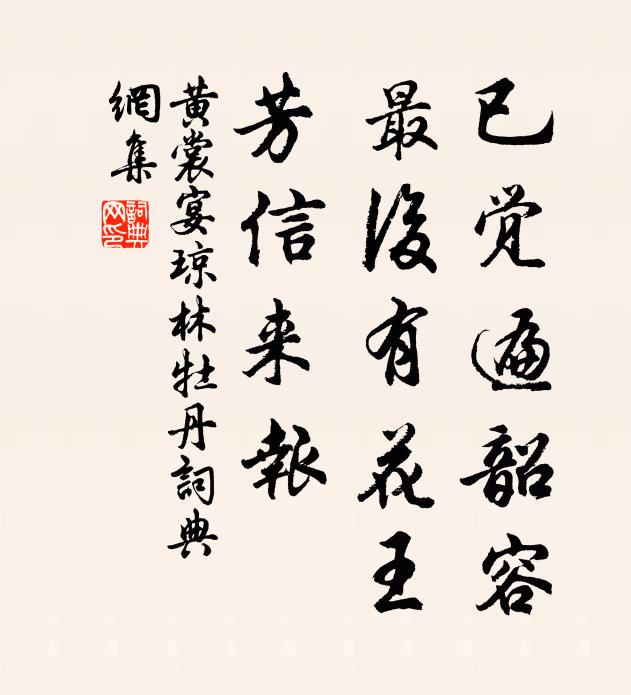 已觉遍韶容
最後有花王
芳信来報
黄裳宴琼林牡丹詞典
網集
詞典
网印